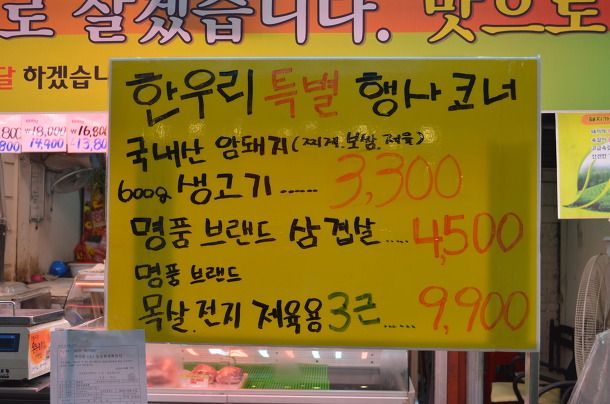 로 잘겠습니다. 맛으로
달 하겠습니
한우리 특별 행사 코너
국내산 암돼지(찌개.보쌈.제육)
600g 생고기...... 3,300
명품 브랜드 삼겹살..... 4,500
명품 브랜드
목살.전지 제육용 3근...... 9,900
18,000 16,800
14,900 13,800